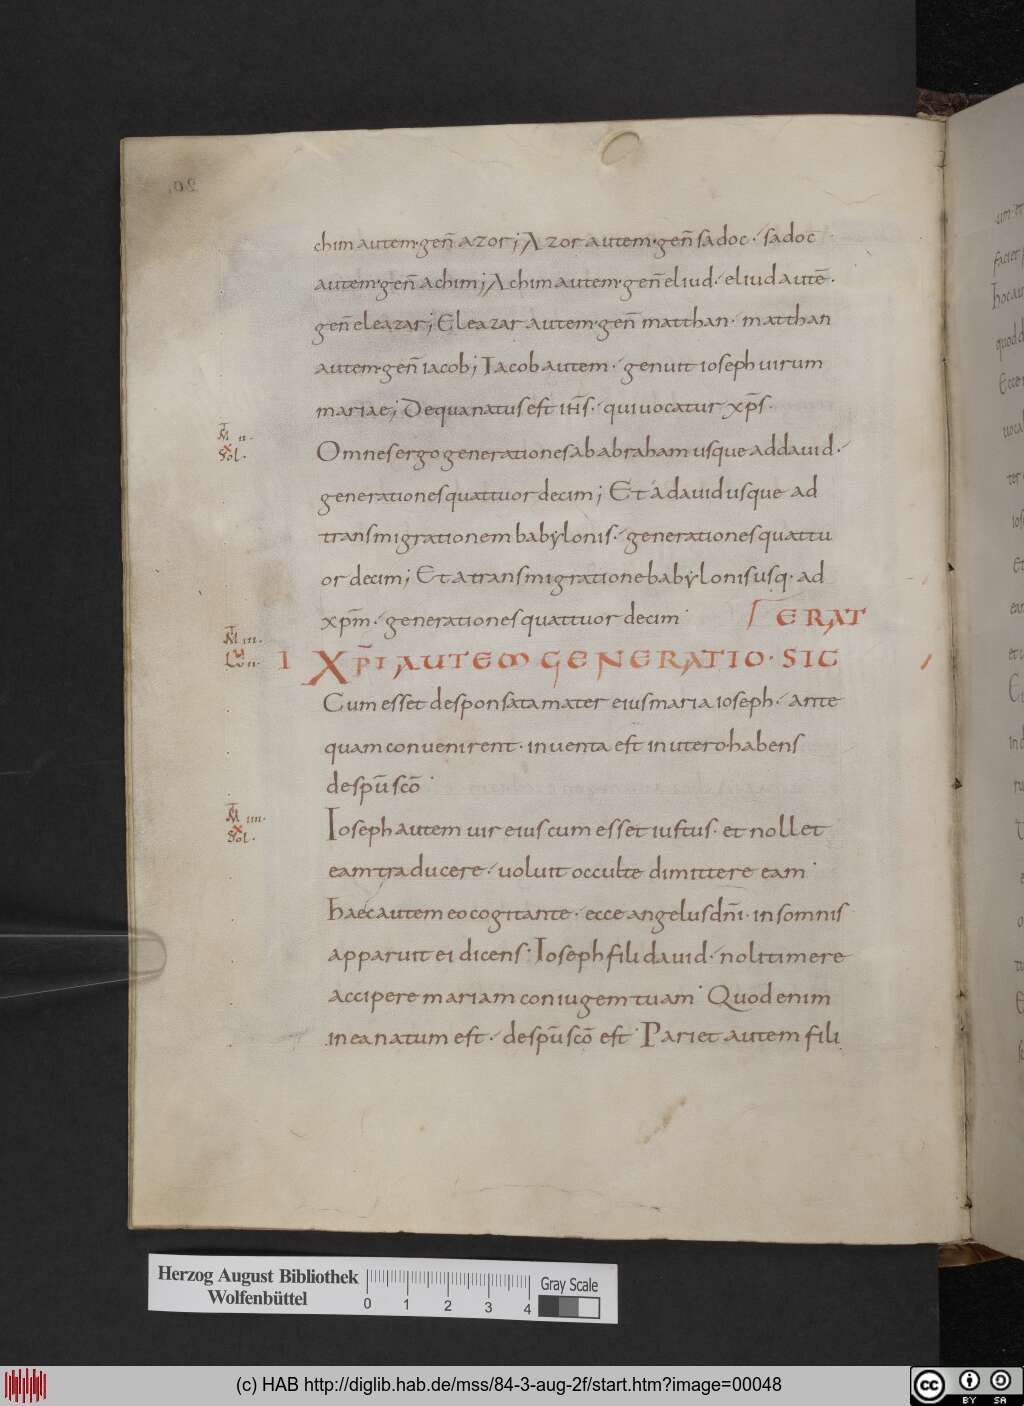 chim autem· geñ azor; Azor autem· geñ sadoc· sadoc
autem· geñ achim; Achim autem· geñ eliud· eliud autē·
geñ eleazar; Eleazar autem· geñ matthan· matthan
autem· geñ iacob; Iacob autem· genuit ioseph uirum
mariae; De qua natus est ihs̄· qui uocatur xps̄·
M̄ ii·
Sol· X
Omnes ergo generationes ab abraham usque ad dauid·
generationes quattuor decim; Et a dauid usque ad
transmigrationem babylonis· generationes quattu
or decim; Et a transmigratione babylonis usq· ad
xpm̄· generationes quattuor decim·
ERAT
M̄ iii·
Lū ii·
I XP̄I AUTEM GENERATIO· SIC
Cum esset desponsata mater eius maria ioseph· ante
quam conuenirent· inuenta est in utero habens
de spū scō·
M̄ iiii·
Sol· X
Ioseph autem uir eius cum esset iustus· et nollet
eam traducere· uoluit occulte dimittere eam·
haec autem eo cogitante· ecce angelus dn̄i· in somnis
apparuit ei dicens· Ioseph fili dauid· noli timere
accipere mariam coniugem tuam· Quod enim
in ea natum est· de spū scō est· Pariet autem fili
Herzog August Bibliothek
Wolfenbüttel
0 1 2 3 4
Gray Scale
(c) HAB http://diglib.hab.de/mss/84-3-aug-2f/start.htm?image=00048
cc BY SA